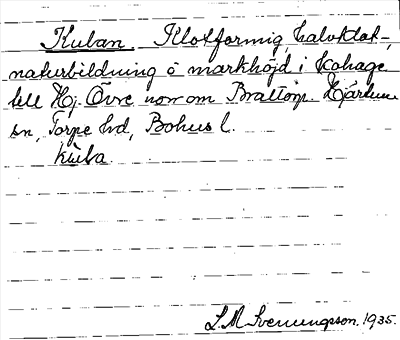 Kuban. Klotformig, halvklot-,
naturbildning å markhöjd i kohage
till Hj. Övre norr om Brattorp. Hjärtum
sn, Torpe hd, Bohus l.
kùba.
L. M. Svenungsson. 1935.